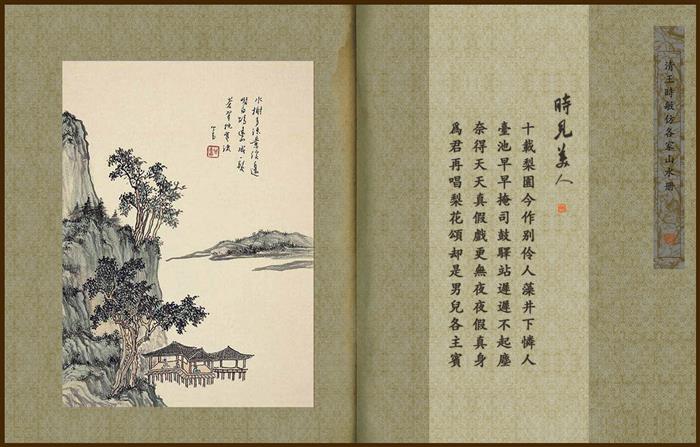 清王時敏仿各家山水冊
時見美人
十載梨園今作别伶人藻井下憐人
臺池早早掩司鼓驛站遲遲不起塵
奈得天天真假戲更無夜夜假真身
爲君再唱梨花頌却是男兒各主賓
水榭